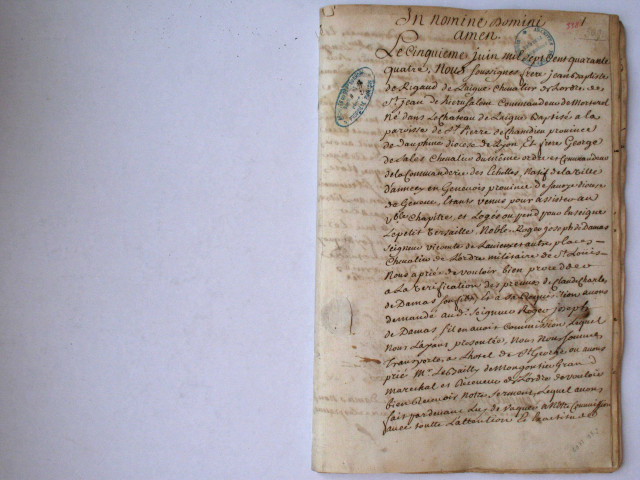 In nomine Domini
amen.
Le Cinquieme juin mil sept Cent quarante
quatre, Nous soussignes frere jean Baptiste
de Rigaud de Laigue Chevalier de Lordre de
St. jean de Hierusalem Commandeur de
Né dans Le Chateau de Laigue Baptisé a la
paroisse de St. Pierre de Chandieu province
de Dauphiné diocese de Lyon, Et frere George
de Sales Chevalier du meme ordre et Commandeur
de la Commanderie des Echelles, Natif de la ville
d'annecy en Genevois province de savoye diocese
de Géneve, Etants venus pour assister au
Chapitre, et Logés ou pend pour Enseigne
Le petit Versaille. Noble Roger joseph de Damas
seigneur vicomte de et autre places
Chevalier de Lordre militaire de St. Louis
Nous a prié de vouloir bien proceder
a La verification des preuves de Claude Charles
de Damas son fils, a sa Requisition avons
demandé au d. seigneur Roger joseph
de Damas s'il en avoit Commission, Lequel
Nous Layant presentée, Nous Nous sommes
Transportes, a Lhotel de St. George ou avons
prié Mr. Le Bailly de Mongontier Grand
Marechal et Receveur de Lordre de vouloir
bien Recevoir Notre serment, Lequel avons
fait pardevant Luy de vaquer a Notre Commission
avec toutte Lattention et Lexactitude